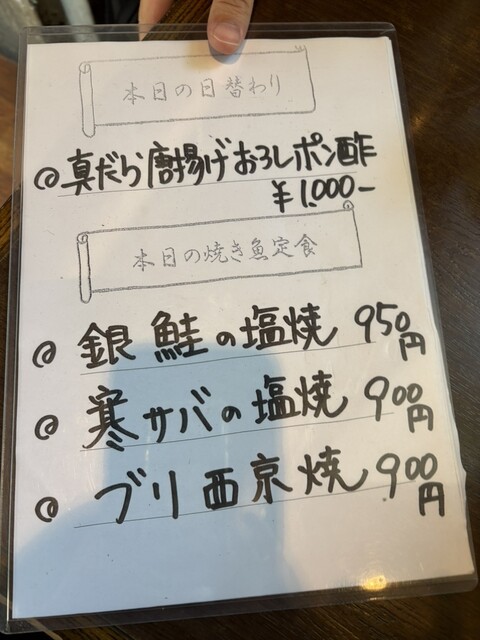 本日の日替わり
真だら唐揚げおろしポン酢
¥1,000-
本日の焼き魚定食
銀鮭の塩焼 950円
寒サバの塩焼 900円
ブリ西京焼 900円